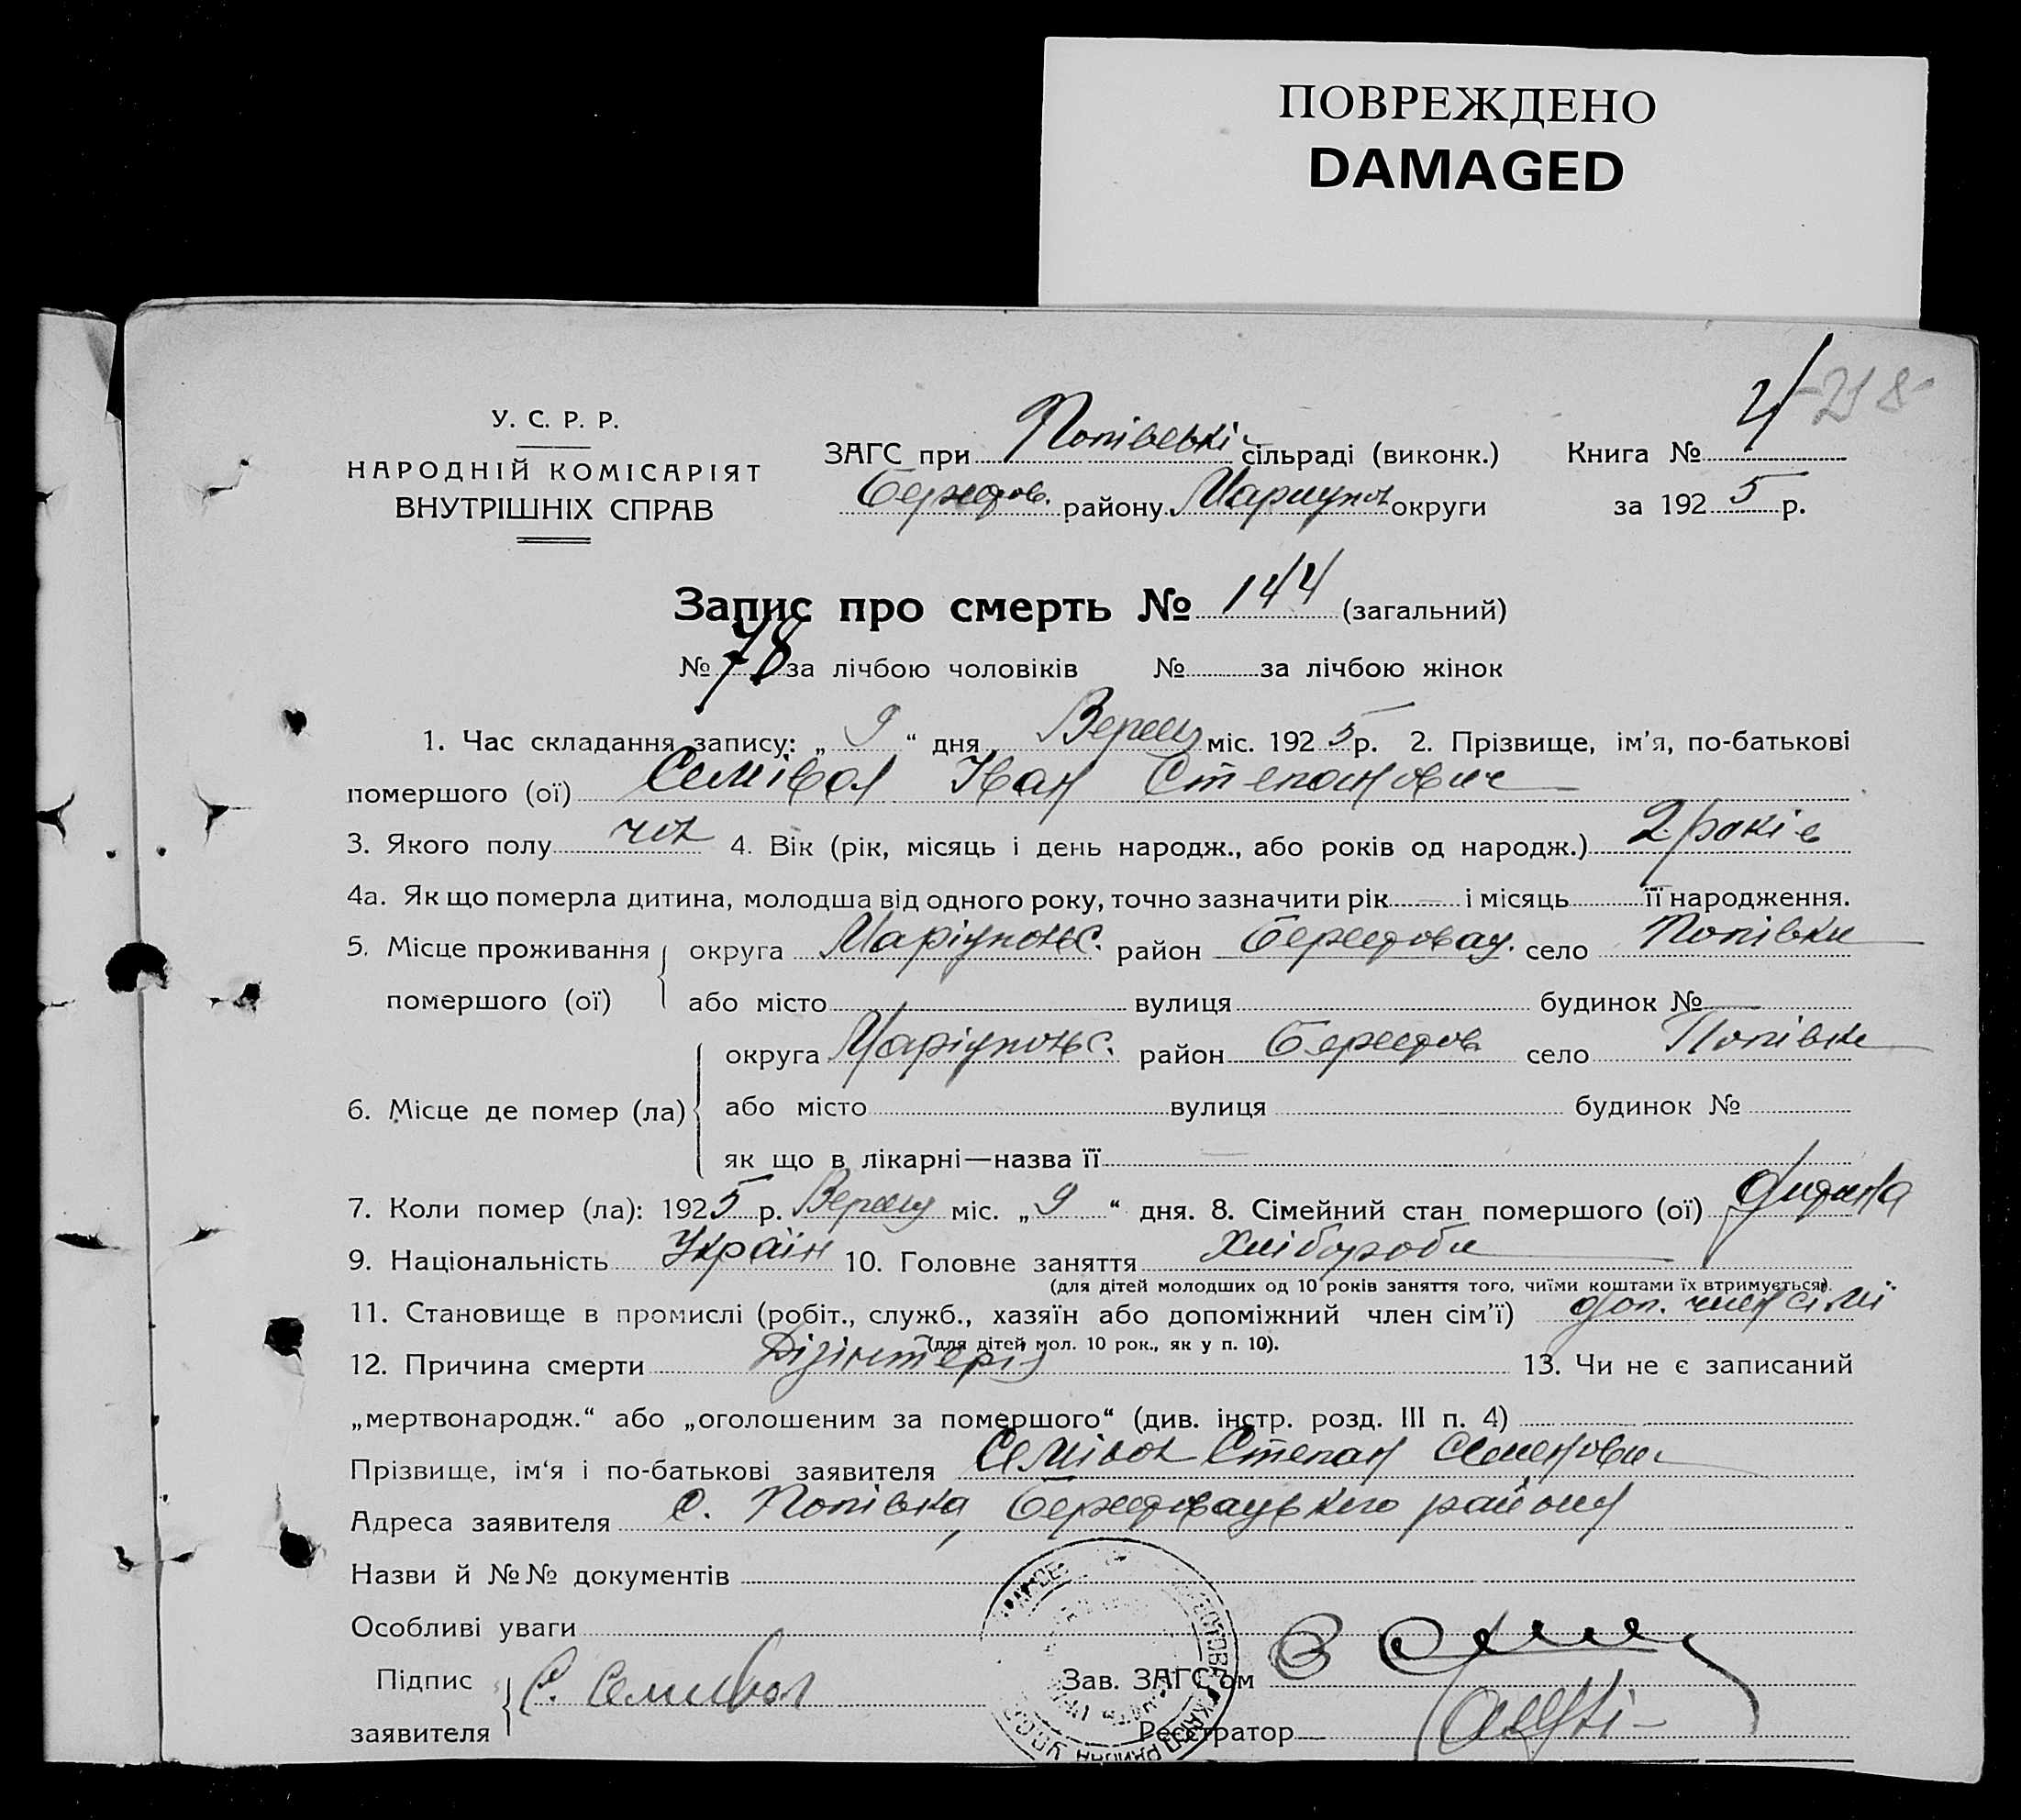 ПОВРЕЖДЕНО
DAMAGED
4 -218
У. С. Р. Р.
НАРОДНІЙ КОМІСАРІЯТ
ВНУТРІШНІХ СПРАВ
ЗАГС при Попівські сільраді (виконк.) Книга №
Берестов. району Маріупол округи за 1925 р.
Запис про смерть № 144 (загальний)
№ 78 за лічбою чоловіків № за лічбою жінок
1. Час складання запису: „ 9 “ дня Вересн міс. 1925 р. 2. Прізвище, ім’я, по-батькові
помершого (ої) Семівол Іван Степанович
3. Якого полу чол 4. Вік (рік, місяць і день народж., або років од народж.) 2 років
4а. Як що померла дитина, молодша від одного року, точно зазначити рік — і місяць її народження.
5. Місце проживання округа Маріупольс. район Берестовац. село Попівки
помершого (ої) або місто вулиця будинок № —
округа Маріупольс. район Берестов село Попівки
6. Місце де помер (ла) або місто вулиця будинок №
як що в лікарні—назва її —
7. Коли помер (ла): 1925 р. Вересн міс. „ 9 “ дня. 8. Сімейний стан помершого (ої) дитина
9. Національність Україн 10. Головне заняття Хліборобы
(для дітей молодших од 10 років заняття того, чиїми коштами їх втримується).
11. Становище в промислі (робіт., служб., хазяїн або допоміжний член сім’ї) доп. член сімі
(для дітей мол. 10 рок., як у п. 10).
12. Причина смерти Дізінтерія 13. Чи не є записаний
„мертвонародж.“ або „оголошеним за помершого“ (див. інстр. розд. III п. 4)
Прізвище, ім‘я і по-батькові заявителя Семівол Степан Семенович
Адреса заявителя с. Попівка, Берестовацького району
Назви й №№ документів
Особливі уваги
Підпис С. Семивол Зав. ЗАГС‘ом
заявителя Реєстратор